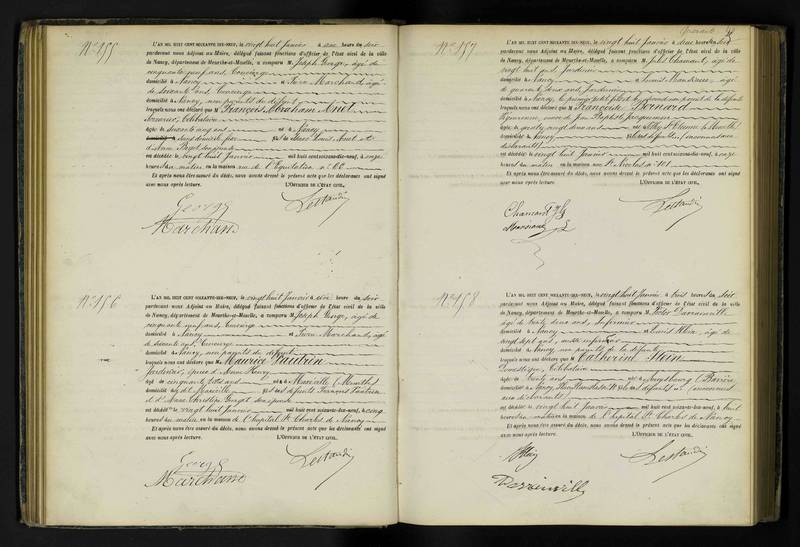 N° 155
L'AN MIL HUIT CENT SOIXANTE-DIX-NEUF, le vingt huit Janvier à une heure du soir
pardevant nous Adjoint au Maire, délégué faisant fonctions d'officier de l'état civil de la ville
de Nancy, département de Meurthe-et-Moselle, a comparu M. Joseph George, âgé de
cinquante neuf ans, Concierge
domicilié à Nancy et Marchand, âgé
de soixante ans, Concierge
domicilié à Nancy, non parents du défunt
lesquels nous ont déclaré que M. François Abraham
Célibataire
âgé de soixante cinq ans né à Nancy
fils de
d'Anne
est décédé le vingt huit Janvier mil huit cent soixante-dix-neuf, à onze
heures du matin en la maison rue de l'Equitation n° 66
Et après nous être assuré du décès, nous avons dressé le présent acte que les déclarants ont signé
avec nous après lecture. L'OFFICIER DE L'ÉTAT CIVIL,
George
Marchand
N° 156
L'AN MIL HUIT CENT SOIXANTE-DIX-NEUF, le vingt huit Janvier à une heure du soir
pardevant nous Adjoint au Maire, délégué faisant fonctions d'officier de l'état civil de la ville
de Nancy, département de Meurthe-et-Moselle, a comparu M. Joseph George, âgé de
cinquante neuf ans, Concierge
domicilié à Nancy et Marchand, âgé
de soixante ans, Concierge
domicilié à Nancy, non parents du défunt
lesquels nous ont déclaré que M. Maurice Vautrin
Jardinier, époux d'Anne Henry
âgé de cinquante trois ans né à Maxéville (Meurthe)
domicilié à Maxéville fils des défunts François Vautrin
et d'Anne Christophe son épouse
est décédé le vingt huit Janvier mil huit cent soixante-dix-neuf, à cinq
heures du matin en la maison de l'hôpital St Charles de Nancy
Et après nous être assuré du décès, nous avons dressé le présent acte que les déclarants ont signé
avec nous après lecture. L'OFFICIER DE L'ÉTAT CIVIL,
George
Marchand
N° 157
L'AN MIL HUIT CENT SOIXANTE-DIX-NEUF, le vingt huit Janvier à une heure du soir
pardevant nous Adjoint au Maire, délégué faisant fonctions d'officier de l'état civil de la ville
de Nancy, département de Meurthe-et-Moselle, a comparu M. Jules Chamant, âgé de
vingt huit ans, Jardinier
domicilié à Nancy et Louis âgé
de quarante deux ans, Jardinier
domicilié à Nancy, le premier petit fils et le second non parent de la défunte
lesquels nous ont déclaré que M. Françoise Bernard
veuve de Jean Baptiste
âgée de quatre vingt deux ans née à
est décédée le vingt huit Janvier mil huit cent soixante-dix-neuf, à onze
heures du matin en la maison rue St Nicolas n° 101
Et après nous être assuré du décès, nous avons dressé le présent acte que les déclarants ont signé
avec nous après lecture. L'OFFICIER DE L'ÉTAT CIVIL,
Chamant
N° 158
L'AN MIL HUIT CENT SOIXANTE-DIX-NEUF, le vingt huit Janvier à trois heures du soir
pardevant nous Adjoint au Maire, délégué faisant fonctions d'officier de l'état civil de la ville
de Nancy, département de Meurthe-et-Moselle, a comparu M. Victor
âgé de trente deux ans, Infirmier
domicilié à Nancy et Louis âgé de
vingt sept ans, aussi infirmier
domicilié à Nancy, non parents de la défunte
lesquels nous ont déclaré que M. Catherine Stein
Domestique, Célibataire
âgée de trente ans née à
domiciliée à Nancy,
est décédée le vingt huit Janvier mil huit cent soixante-dix-neuf, à huit
heures du matin en la maison de l'hôpital St Charles de Nancy
Et après nous être assuré du décès, nous avons dressé le présent acte que les déclarants ont signé
avec nous après lecture. L'OFFICIER DE L'ÉTAT CIVIL,